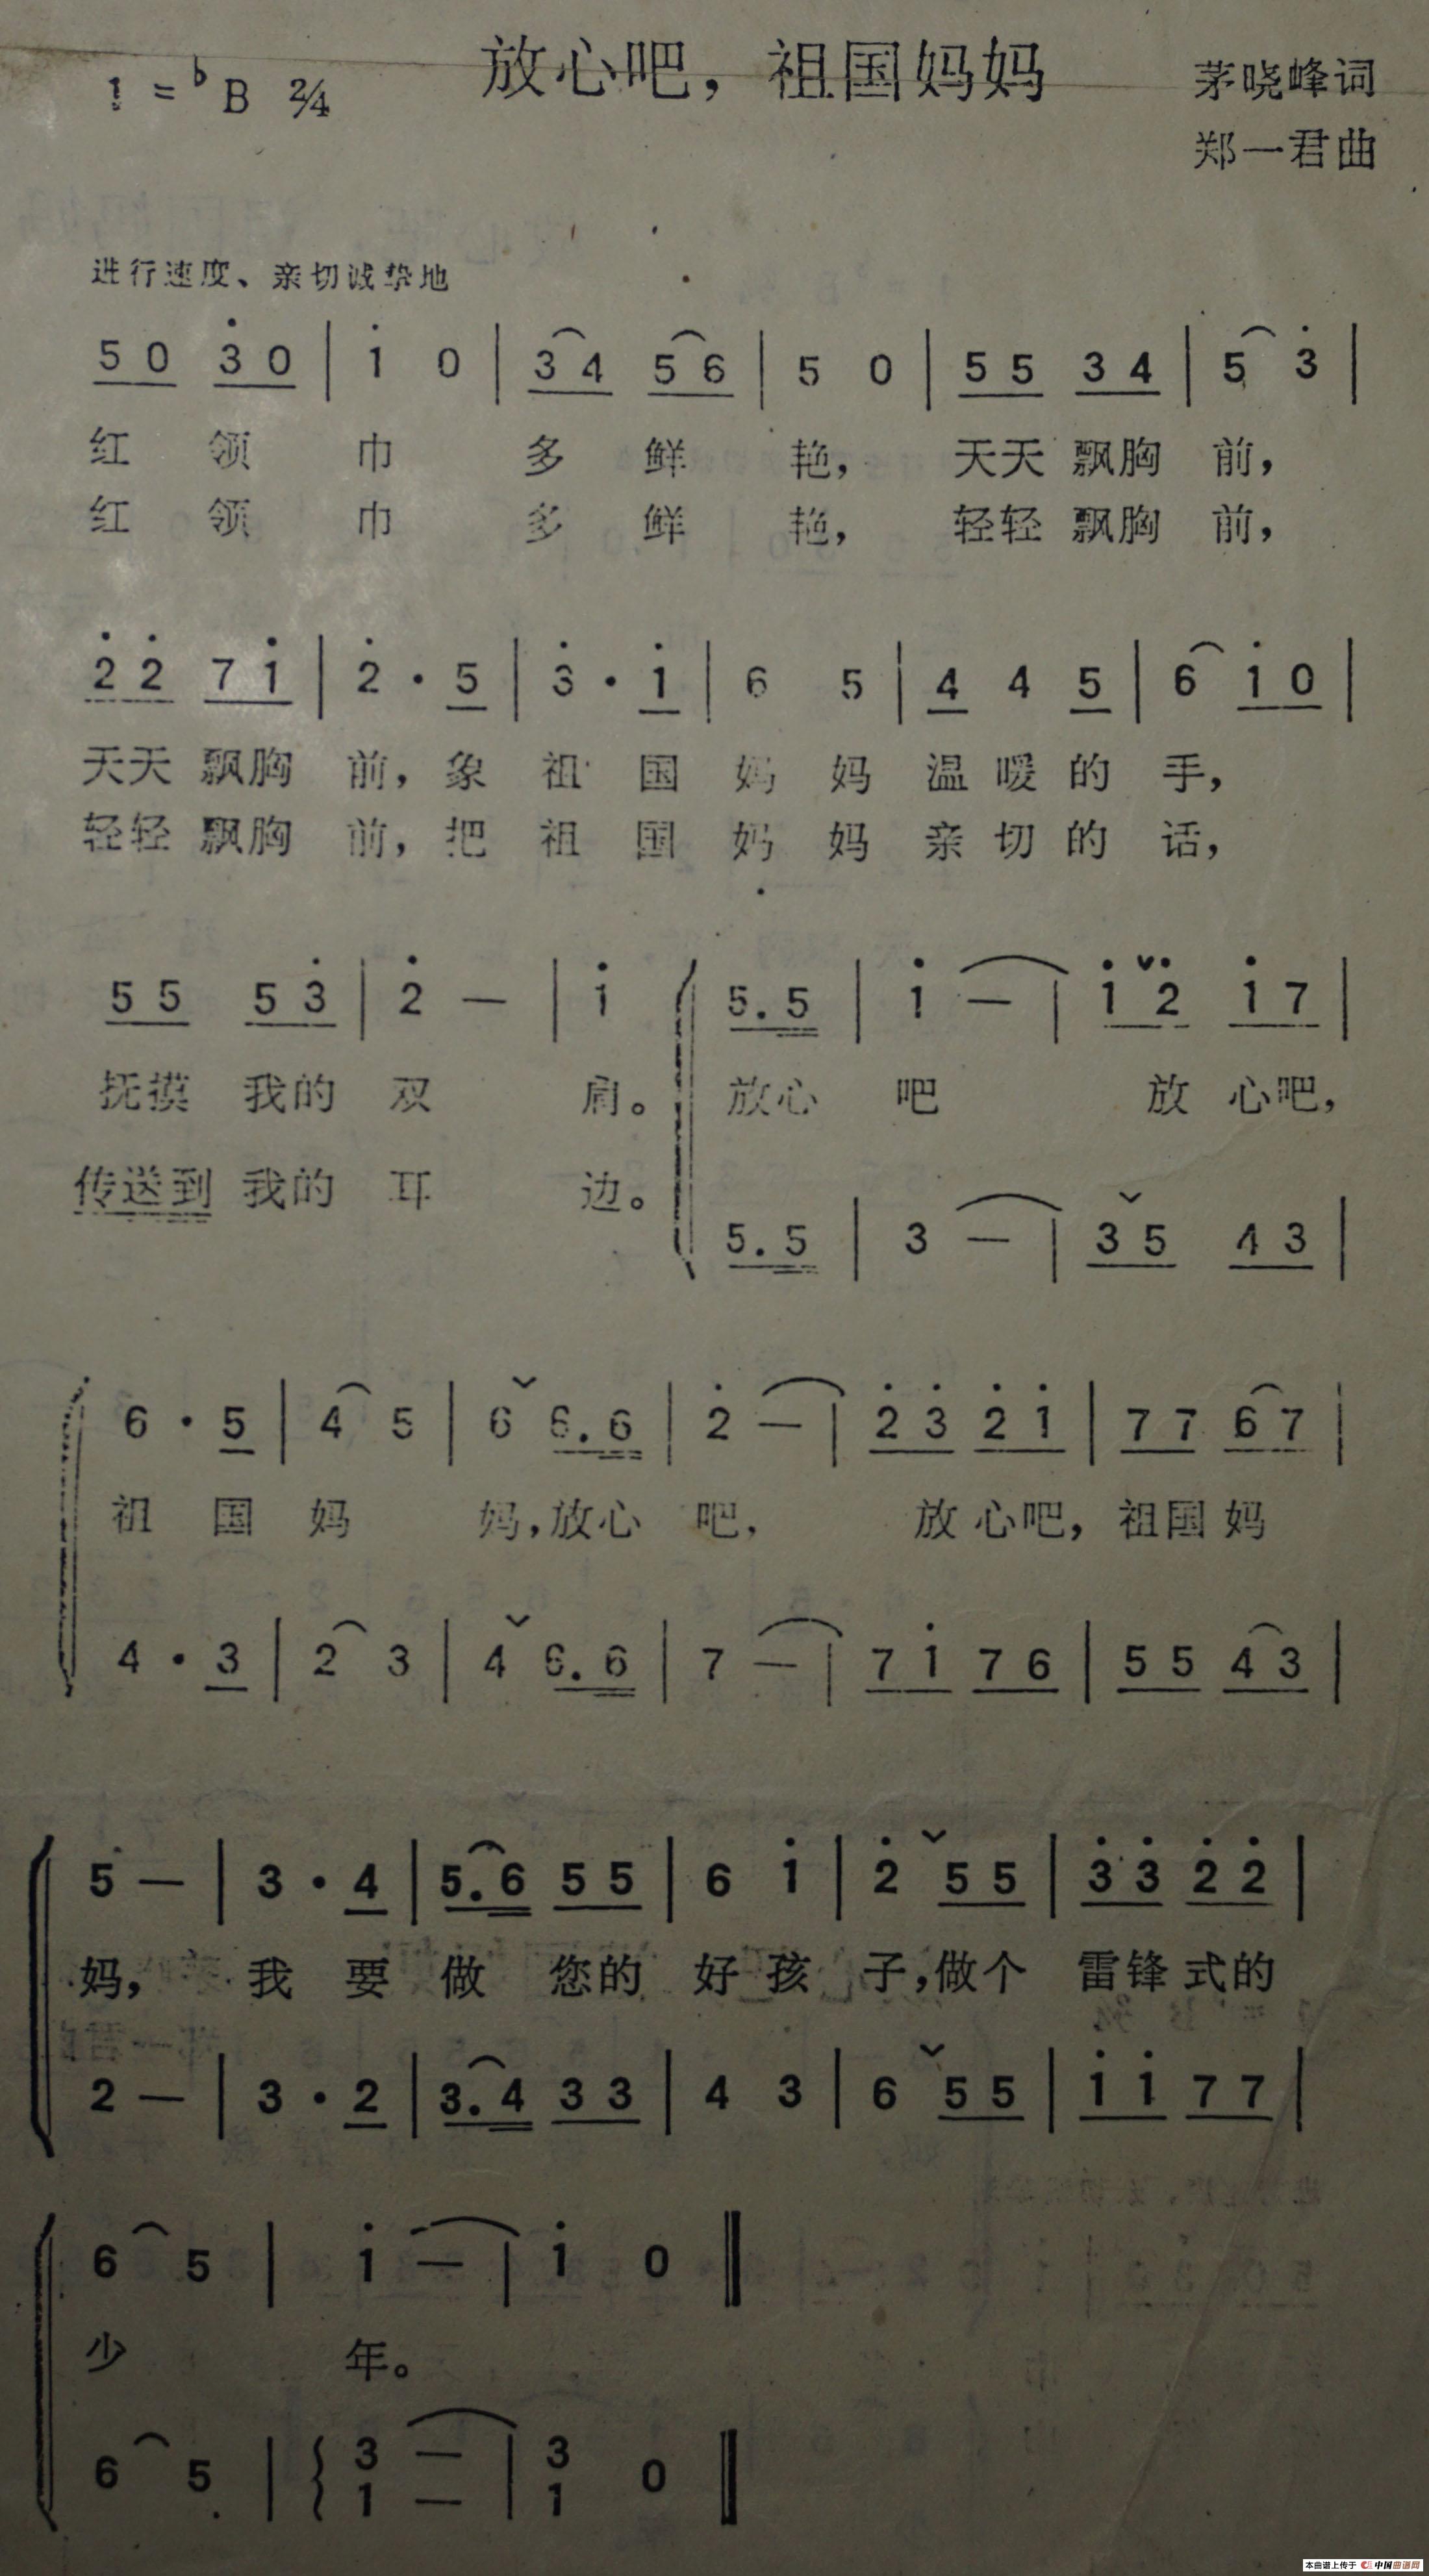 放心吧，祖国妈妈
1 = ♭B 2/4
茅晓峰词
郑一君曲
进行速度、亲切诚挚地
5 0 3̇ 0 | 1̇ 0 | 3 4 5 6 | 5 0 | 5 5 3 4 | 5 3̇ |
红 领 巾 多 鲜 艳， 天天 飘胸 前，
红 领 巾 多 鲜 艳， 轻轻 飘胸 前，
2̇ 2̇ 7 1̇ | 2̇ · 5 | 3̇ · 1̇ | 6 5 | 4 4 5 | 6 1̇ 0 |
天天 飘胸 前，象 祖 国 妈 妈 温 暖 的 手，
轻轻 飘胸 前，把 祖 国 妈 妈 亲 切 的 话，
5 5 5 3̇ | 2̇ — | 1̇ 5. 5 | 1̇ — | 1̇ 2̇ 1̇ 7 |
抚摸 我的 双 肩。 放心 吧 放 心吧，
传送到 我的 耳 边。
5. 5 | 3 — | 3 5 4 3 |
6 · 5 | 4 5 | 6 6. 6 | 2̇ — | 2̇ 3̇ 2̇ 1̇ | 7 7 6 7 |
祖 国 妈 妈，放心 吧， 放 心吧，祖国 妈
4 · 3 | 2 3 | 4 6. 6 | 7 — | 7 1̇ 7 6 | 5 5 4 3 |
5 — | 3 · 4 | 5. 6 5 5 | 6 1̇ | 2̇ 5 5 | 3̇ 3̇ 2̇ 2̇ |
妈， 我 要 做 您的 好 孩 子，做个 雷锋 式的
2 — | 3 · 2 | 3. 4 3 3 | 4 3 | 6 5 5 | 1̇ 1̇ 7 7 |
6 5 | 1̇ — | 1̇ 0 ‖
少 年。
6 5 | 3 — | 3 0 ‖
1 — 1
本曲谱上传于 中国曲谱网